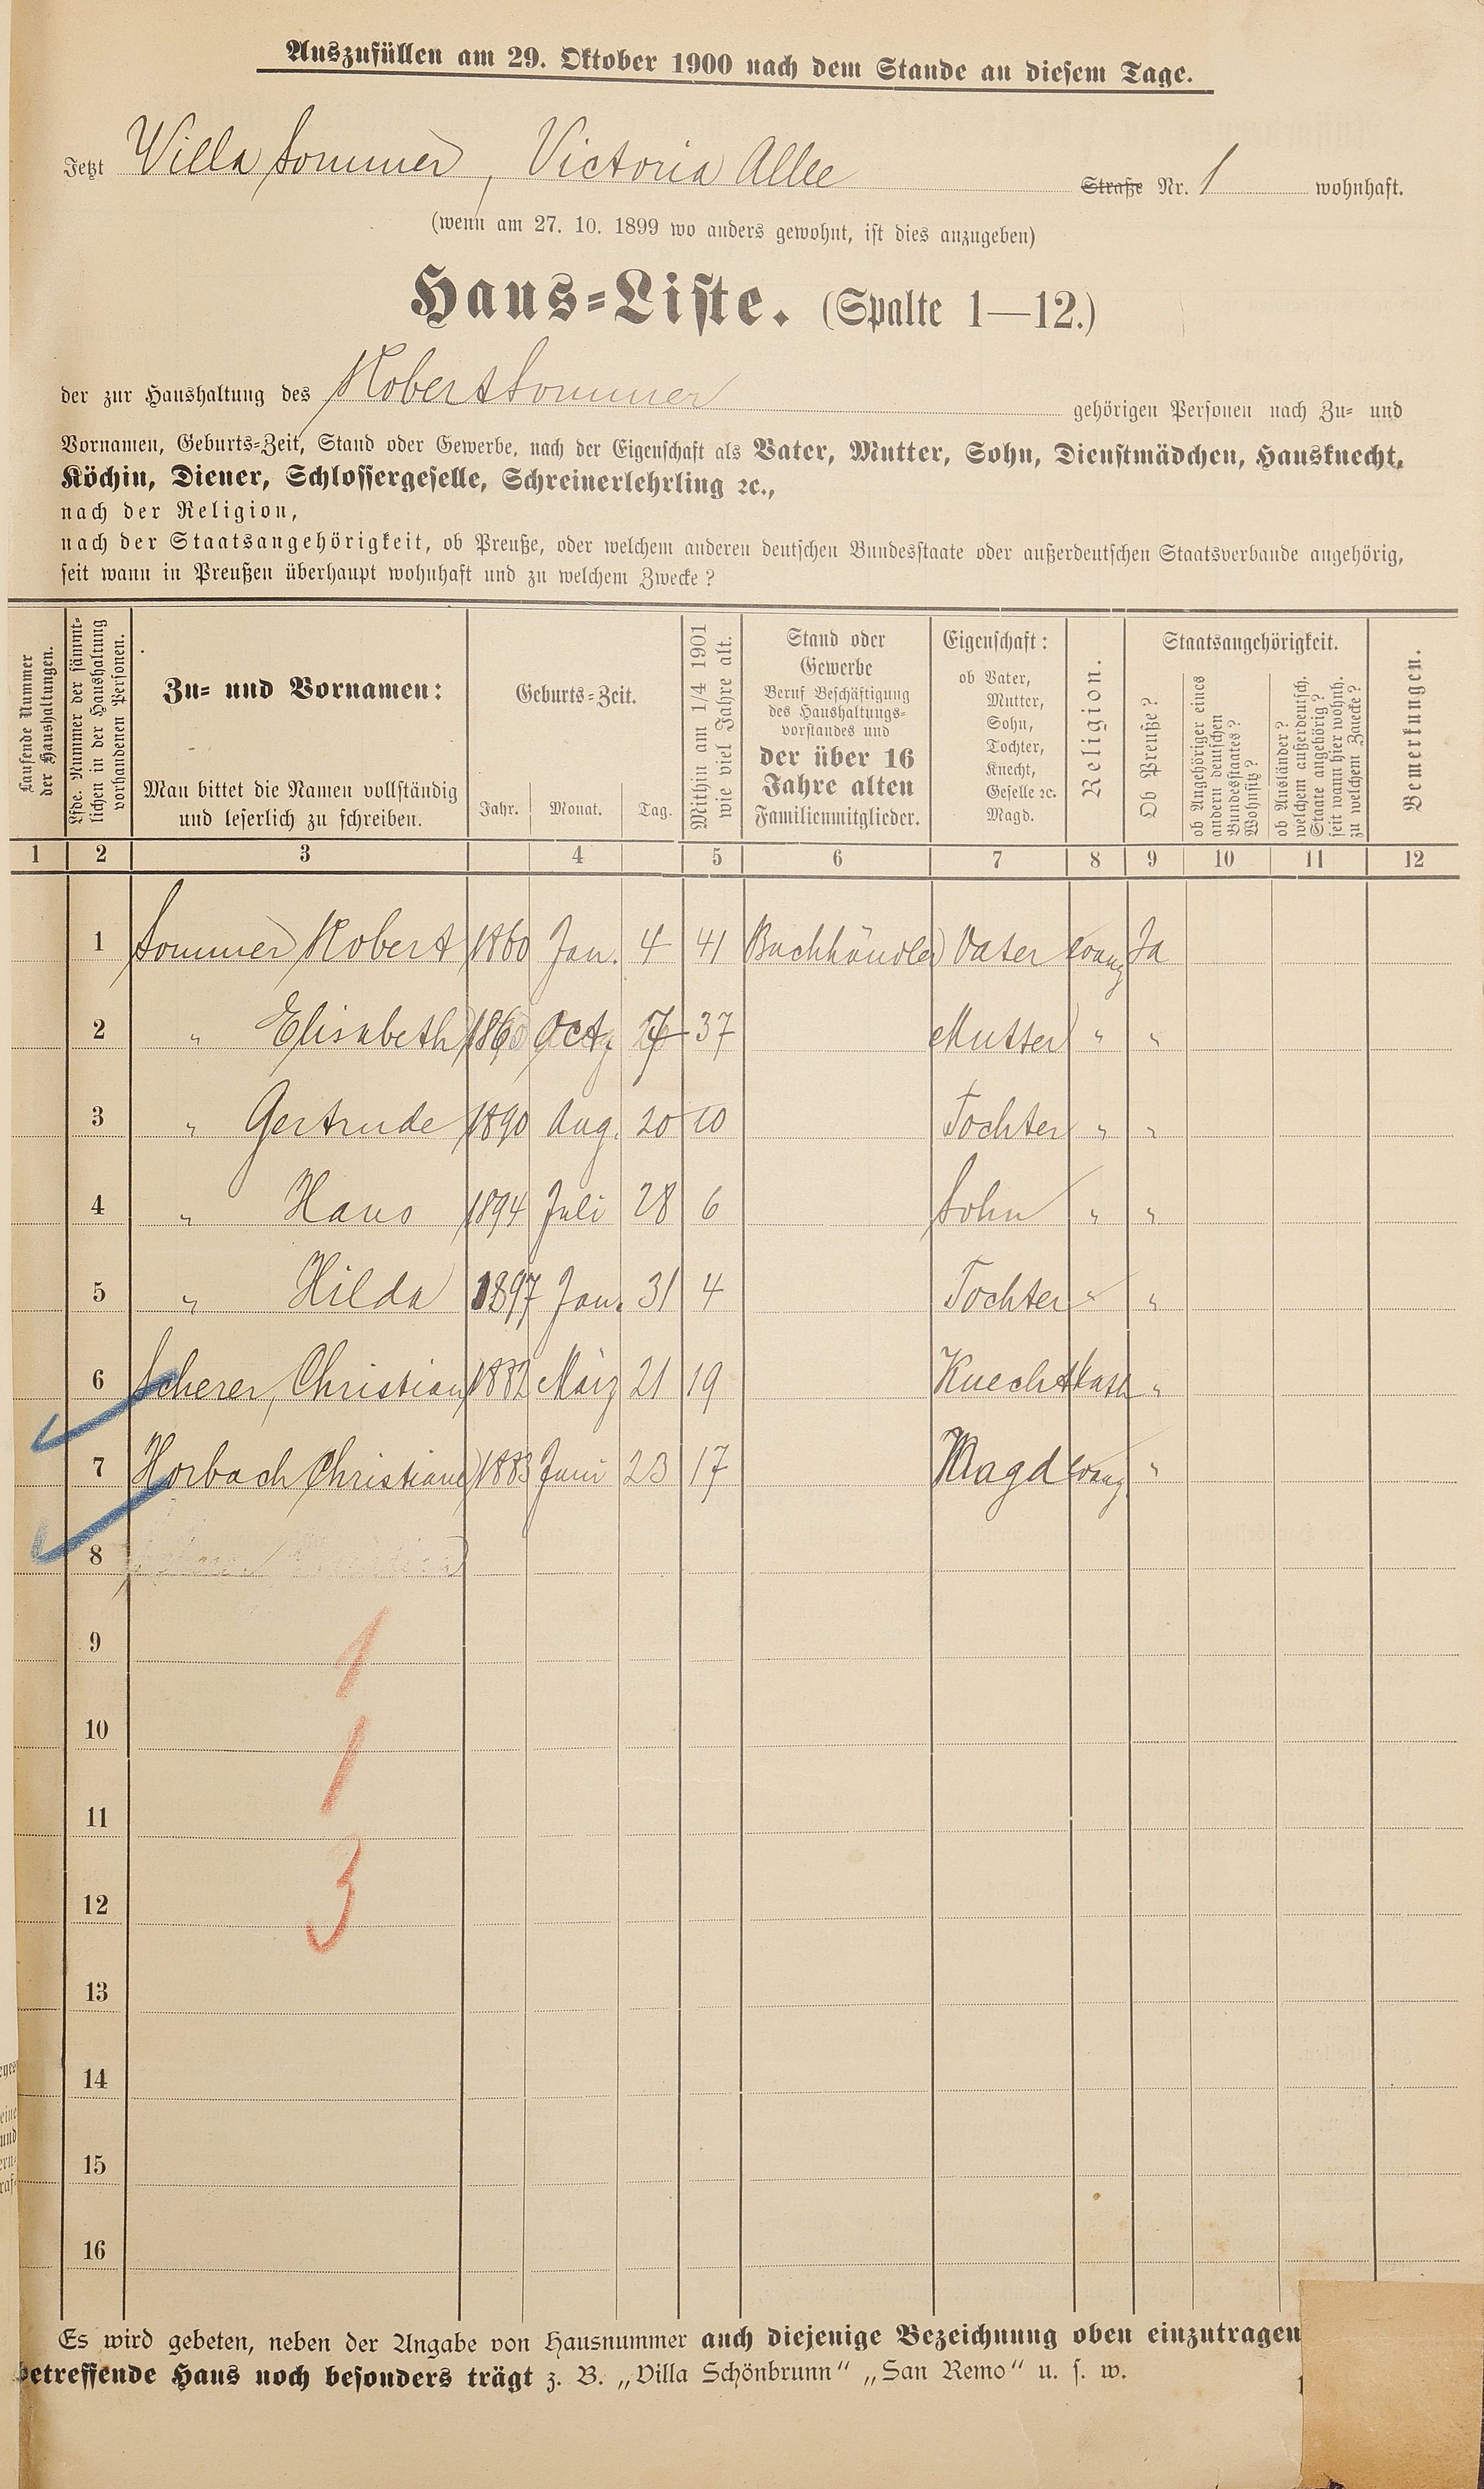 Auszufüllen am 29. Oktober 1900 nach dem Stande an diesem Tage.
Jetzt Villa Sommer, Victoria Allee Straße Nr. 1 wohnhaft.
(wenn am 27. 10. 1899 wo anders gewohnt, ist dies anzugeben)
Haus-Liste. (Spalte 1—12.)
der zur Haushaltung des Robert Sommer gehörigen Personen nach Zu- und
Vornamen, Geburts-Zeit, Stand oder Gewerbe, nach der Eigenschaft als Vater, Mutter, Sohn, Dienstmädchen, Hausknecht,
Köchin, Diener, Schlossergeselle, Schreinerlehrling ꝛc.,
nach der Religion,
nach der Staatsangehörigkeit, ob Preuße, oder welchem anderen deutschen Bundesstaate oder außerdeutschen Staatsverbande angehörig,
seit wann in Preußen überhaupt wohnhaft und zu welchem Zwecke?
Laufende Nummer
der Haushaltungen.
Lfde. Nummer der sämmt-
lichen in der Haushaltung
vorhandenen Personen.
Zu- und Vornamen:
Man bittet die Namen vollständig
und leserlich zu schreiben.
Geburts-Zeit.
Jahr. Monat. Tag.
Mithin am 1/4 1901
wie viel Jahre alt.
Stand oder
Gewerbe
Beruf Beschäftigung
des Haushaltungs-
vorstandes und
der über 16
Jahre alten
Familienmitglieder.
Eigenschaft:
ob Vater,
Mutter,
Sohn,
Tochter,
Knecht,
Geselle ꝛc.
Magd.
Religion.
Staatsangehörigkeit.
Ob Preuße?
ob Angehöriger eines
andern deutschen
Bundesstaates?
Wohnsitz?
ob Ausländer?
welchem außerdeutsch.
Staate angehörig?
seit wann hier wohnh.
zu welchem Zwecke?
Bemerkungen.
1 2 3 4 5 6 7 8 9 10 11 12
1 Sommer Robert 1860 Jan. 4 41 Buchhändler Vater evang Ja
2 " Elisabeth 186 Oct. 37 Mutter " "
3 " Gertrude 1890 Aug. 20 10 Tochter " "
4 " Hans 1894 Juli 28 6 Sohn " "
5 " Hilda 1897 Jan. 31 4 Tochter " "
6 Scherer, Christian 1882 März 21 19 Knecht kath "
7 Horbach Christiane 1883 Juni 23 17 Magd evang. "
8
9
1
10
1
11
12
3
13
14
15
16
Es wird gebeten, neben der Angabe von Hausnummer auch diejenige Bezeichnung oben einzutragen
betreffende Haus noch besonders trägt z. B. „Villa Schönbrunn“ „San Remo“ u. s. w.